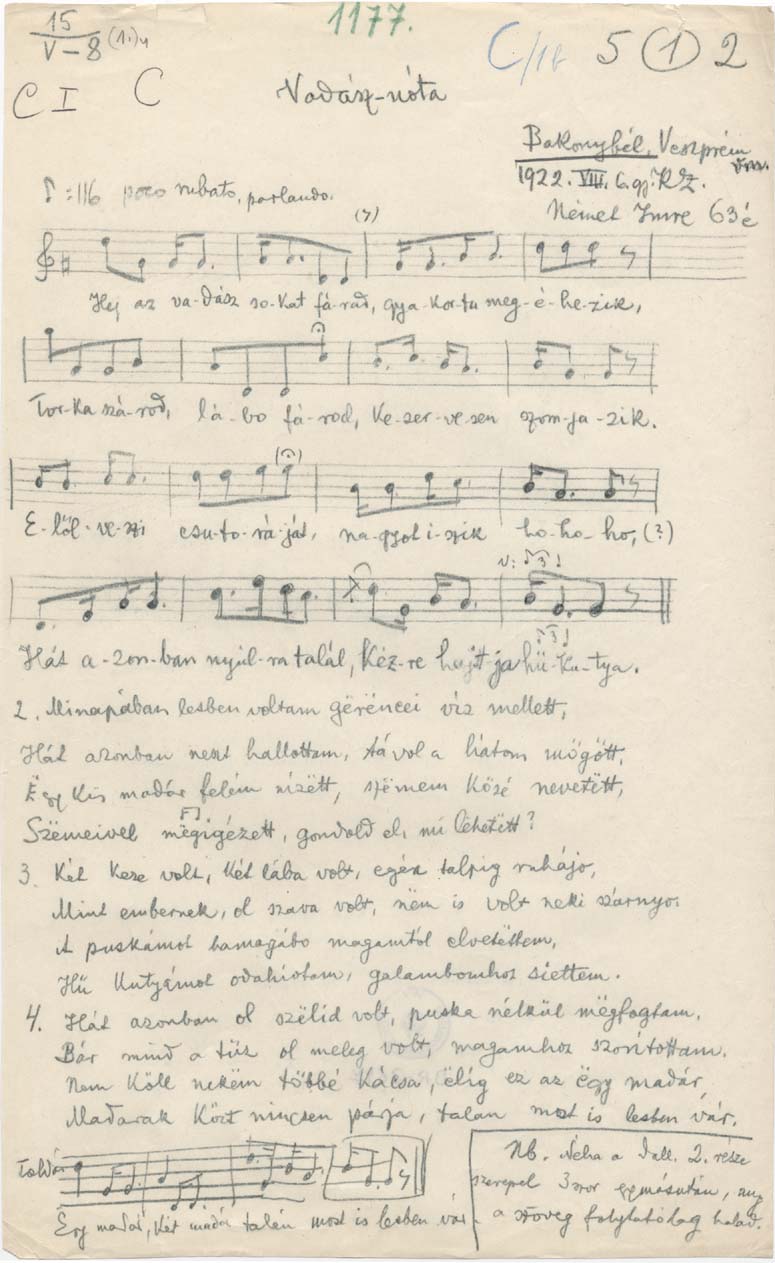 15
V-8 (1.)4
1177.
C/16 5 (1) 2
C I C
Vadász-nóta
Bakonybél, Veszprém vm.
1922. VIII. 6. gy. RZ.
Német Imre 63 é
♪=116 poco rubato, parlando.
Hej az va-dász so-kat fá-rad, gya-kor-ta meg-é-he-zik,
Tor-ka szá-rod, lá-bo fá-rod, ke-ser-ve-sen szom-ja-zik.
E-lől-ve-szi csu-to-rá-ját, na-gyot i-szik ho-ho-ho, (?)
v: 3
Hát a-zon-ban nyúl-ra talál, kéz-re hajt-ja hű-ku-tya.
2. Minapában lesben voltam gërëncei víz mellett,
Hát azonban neszt hallottam, távol a hátam mögött,
Ëgy kis madár felém nízëtt, szëmem közé nevetëtt,
Szëmeivel mëgigézett, gondold el, mi lëhetëtt?
3. Két keze volt, két lába volt, egén talpig ruhájo,
Mint embernek, ol szava volt, nëm is volt neki szárnyo.
A puskámot hamagábo magamtól elvetëttem,
Hű kutyámot odahíotam, galambomhoz siettem.
4. Hát azonban ol szëlid volt, puska nélkül mëgfogtam,
Bár mind a tűz ol meleg volt, magamhoz szorítottam.
Nem köll nekëm többé kácsa, ëlíg ez az ëgy madár,
Madarak közt nincsen párja, talán most is lesben vár.
Toldás
Ëgy madár, két madár talán most is lesben vár
Nb. Néha a dall. 2. része
szerepel 3szor egymásután, míg
a szöveg folytatólag halad.